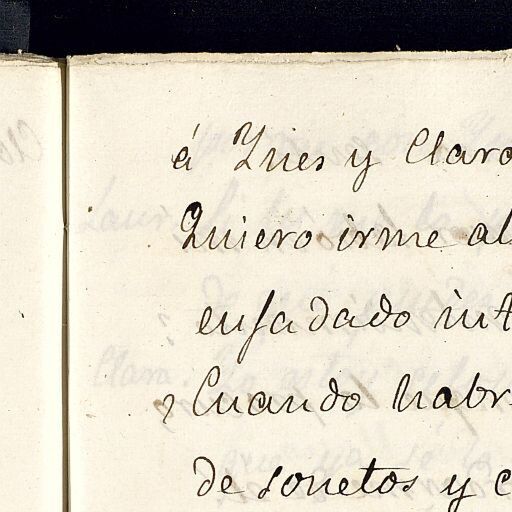 á Ynes y Clara
Quiero irme al
enfadado int
¿Cuando habr
de sonetos y c